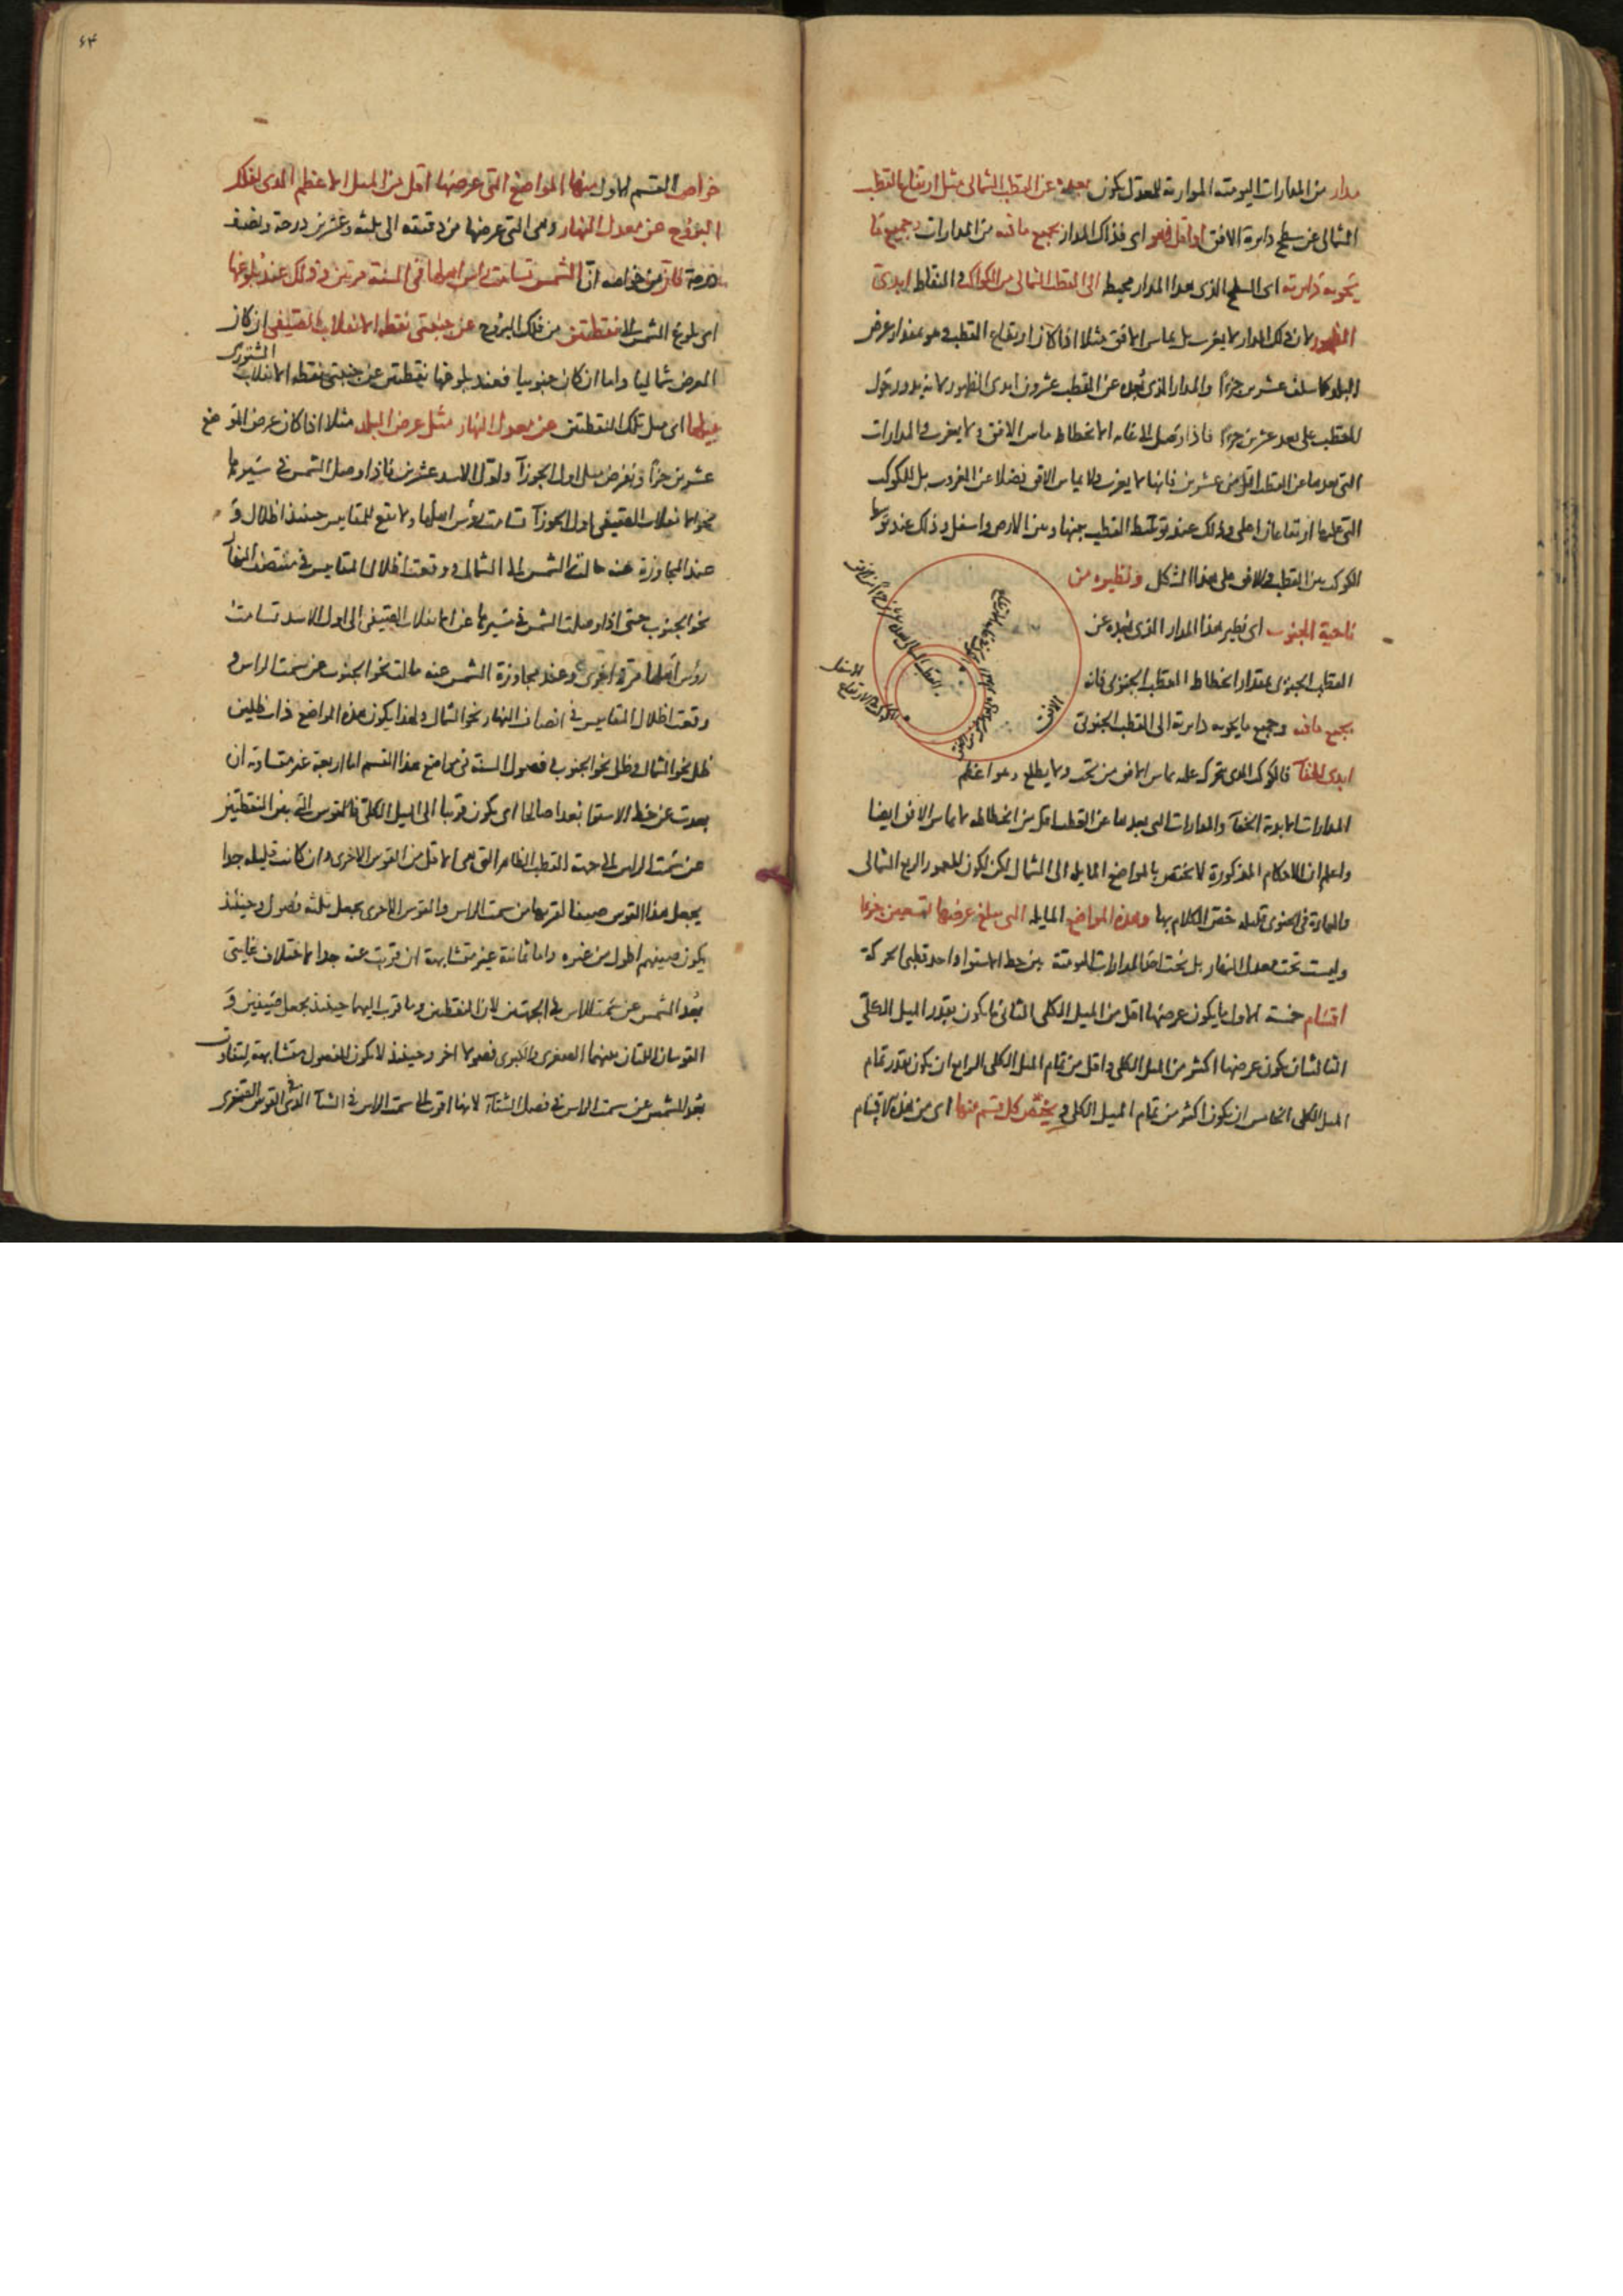 مدار من المدارات اليومية الموازية للمعدل يكون بعده عن القطب الشمالى مثل ارتفاع القطب
الشمالى عن سطح دايرة الافق او اقل فهو اى فذاك المدار بجميع ما فيه من المدارات وجميع ما
تحويه دايرته اى السطح الذى هذا المدار محيط الى القطب الشمالى من الكواكب والنقاط ابدى
الظهور لان ذلك المدار لا يغرب بل يماس الافق مثلا اذا كان ارتفاع القطب وهو بمقدار عرض
البلد عشرين جزءا والمدار الذى بعده عن القطب عشرون ابدى الظهور لانه يدور حول
القطب على بعد عشرين جزءا فاذا وصل الى غاية الانحطاط ماس الافق ولا يغرب والمدارات
التى بعدها عن القطب اقل من عشرين فانها لا يغرب ولا يماس الافق فضلا عن الغروب بل للكوكب
التى عليها ارتفاعان اعلى وذلك عند توسط القطب بينها وبين الارض واسفل وذلك عند توسط
الكوكب بين القطب والافق على هذا الشكل ونظيره من
ناحية الجنوب اى نظير هذا المدار الذى بعده عن
القطب الجنوبى بمقدار انحطاط القطب الجنوبى فانه
بجميع ما فيه وجميع ما يحويه دايرته الى القطب الجنوبى
الافق
ابدى الخفآ فالكوكب الذى يتحرك عليه يماس الافق من تحت ولا يطلع وهو اعظم
المدارات الابدية الخفآ والمدارات التى بعدها عن القطب اقل من انحطاطه لا يماس الافق ايضا
واعلم ان الاحكام المذكورة لا يختص بالمواضع المايلة الى الشمال لكن لكون المعمور الربع الشمالى
والعمارة فى الجنوبى قليلة خص الكلام بها وهذه المواضع المايلة التى يبلغ عرضها تسعين جزءا
وليست تحت معدل النهار بل تحت احد المدارات اليومية بين خط الاستوا واحد قطبى الحركة
اقسام خمسة الاول ما يكون عرضها اقل من الميل الكلى الثانى ما يكون بقدر الميل الكلى
الثالث ان يكون عرضها اكثر من الميل الكلى واقل من تمام الميل الكلى الرابع ان يكون بقدر تمام
الميل الكلى الخامس ان يكون اكثر من تمام الميل الكلى ويختص كل قسم منها اى من هذه الاقسام
۶۴
خواص القسم الاول منها المواضع التى عرضها اقل من الميل الاعظم الذى لفلك
البروج عن معدل النهار وهى التى عرضها من دقيقة الى ثلثة وعشرين درجة ونصف
درجة فان من خواصه ان الشمس تسامت راس اهلها فى السنة مرتين وذلك عند بلوغها
اى بلوغ الشمس الى نقطتين من فلك البروج عن جنبتى نقطة الانقلاب الصيفى ان كان
العرض شماليا واما ان كان جنوبيا فعند بلوغها نقطتين عن جنبتى نقطة الانقلاب الشتوى
ميلهما اى ميل تلك النقطتين عن معدل النهار مثل عرض البلد مثلا اذا كان عرض الموضع
عشرين جزءا ونفرض ميل اول الجوزآ واول الاسد عشرين فاذا وصل الشمس فى سيرها
نحو الانقلاب الصيفى اول الجوزآ تسامت رؤس اهلها ولا يقع للمقاييس حينئذ اظلال و
عند المجاوزة عنه مالت الشمس الى الشمال ووقعت اظلال المقاييس فى منتصف النهار
نحو الجنوب حتى اذا وصلت الشمس فى سيرها عن الانقلاب الصيفى الى اول الاسد تسامت
رؤس اهلها مرة اخرى وعند مجاوزة الشمس عنه مالت نحو الجنوب عن سمت الراس و
وقعت اظلال المقاييس فى انصاف النهار نحو الشمال ولهذا يكون هذه المواضع ذات ظلين
ظل نحو الشمال وظل نحو الجنوب وفصول السنة فى مواضع هذا القسم اما اربعة غير متساوية ان
بعدت عن خط الاستوا بعدا صالحا اى يكون قريبا الى الميل الكلى فالقوس التى بين النقطتين
عن سمت الراس الى جهة القطب الظاهر التى هى الاقل من القوس الاخرى وان كانت قليلة جدا
يجعل هذا القوس صيفا لقربها من سمت الراس والقوس الاخرى يجعل ثلثة فصول وحينئذ
يكون صيفهم اطول من غيره واما ثمانية غير متشابهة ان قربت عنه جدا لاختلاف غايتى
بعد الشمس عن سمت الراس فى الجهتين لان النقطتين وما قرب اليهما حينئذ يجعل صيفين و
القوسان اللتان بينهما الصغرى والكبرى فصولا اخر وحينئذ لا يكون الفصول متشابهة لتفاوت
بعد الشمس عن سمت الراس فى فصل الشتآ لانها اقرب الى سمت الراس فى الشتآ الذى فى القوس الصغرى